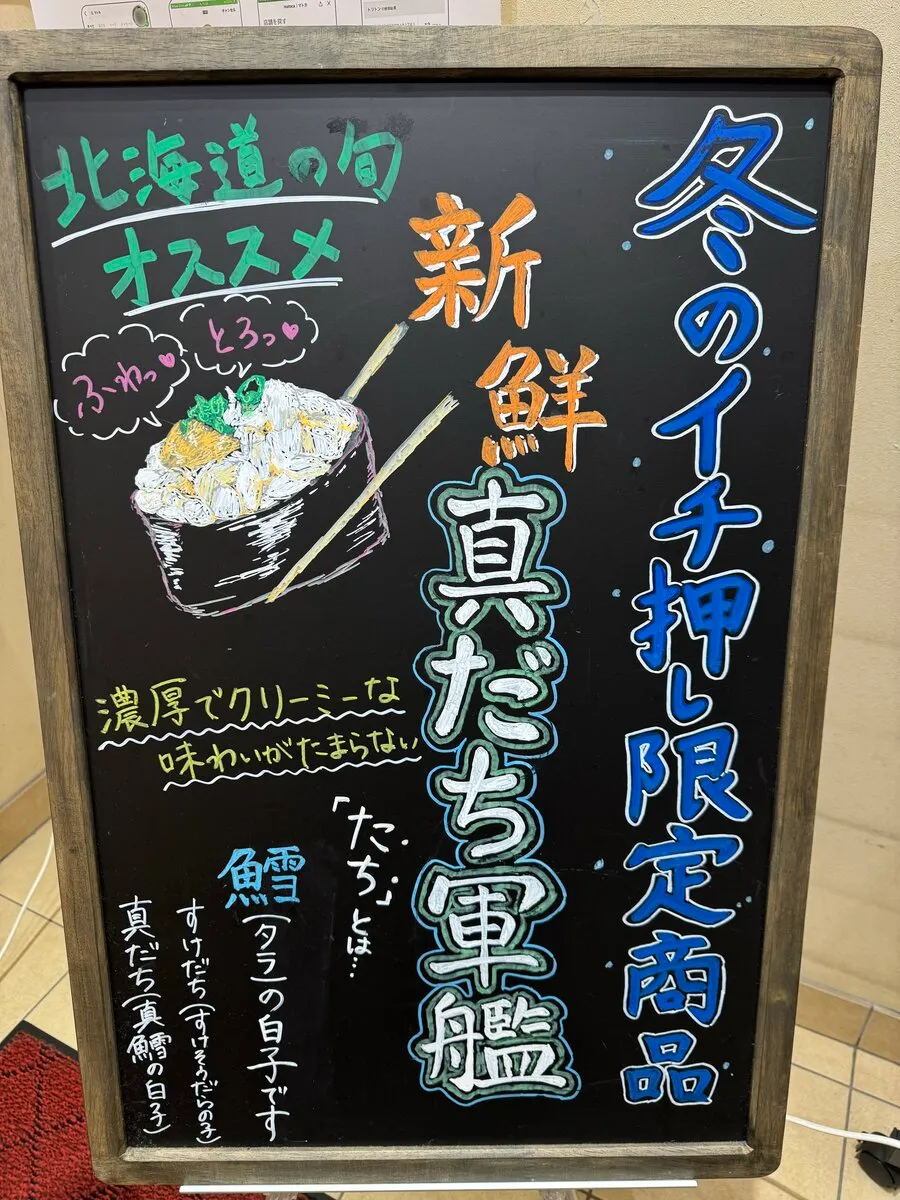 冬のイチ押し限定商品
北海道の旬
オススメ
新鮮
真だち軍艦
ふわっ
とろっ
濃厚でクリーミーな
味わいがたまらない
「たち」とは…
鱈(タラ)の白子です
すけだち(すけそうだらの子)
真だち(真鱈の白子)